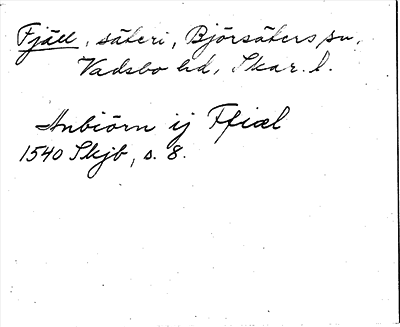 Fjäll, säteri, Björsäters sn,
Vadsbo hd, Skar. l.
Anbiörn ij Ffiæl
1540 Skjb, s. 8.